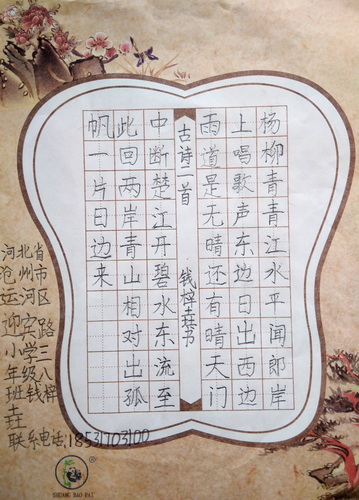 杨柳青青江水平闻郎岸
上唱歌声东边日出西边
雨道是无晴还有晴天门
古诗二首
钱梓垚书
中断楚江开碧水东流至
此回两岸青山相对出孤
帆一片日边来
河北省
沧州市
运河区
迎宾路
小学三
年级八
班钱梓
垚
联系电话:18531703100
SHUANG BAO PAI